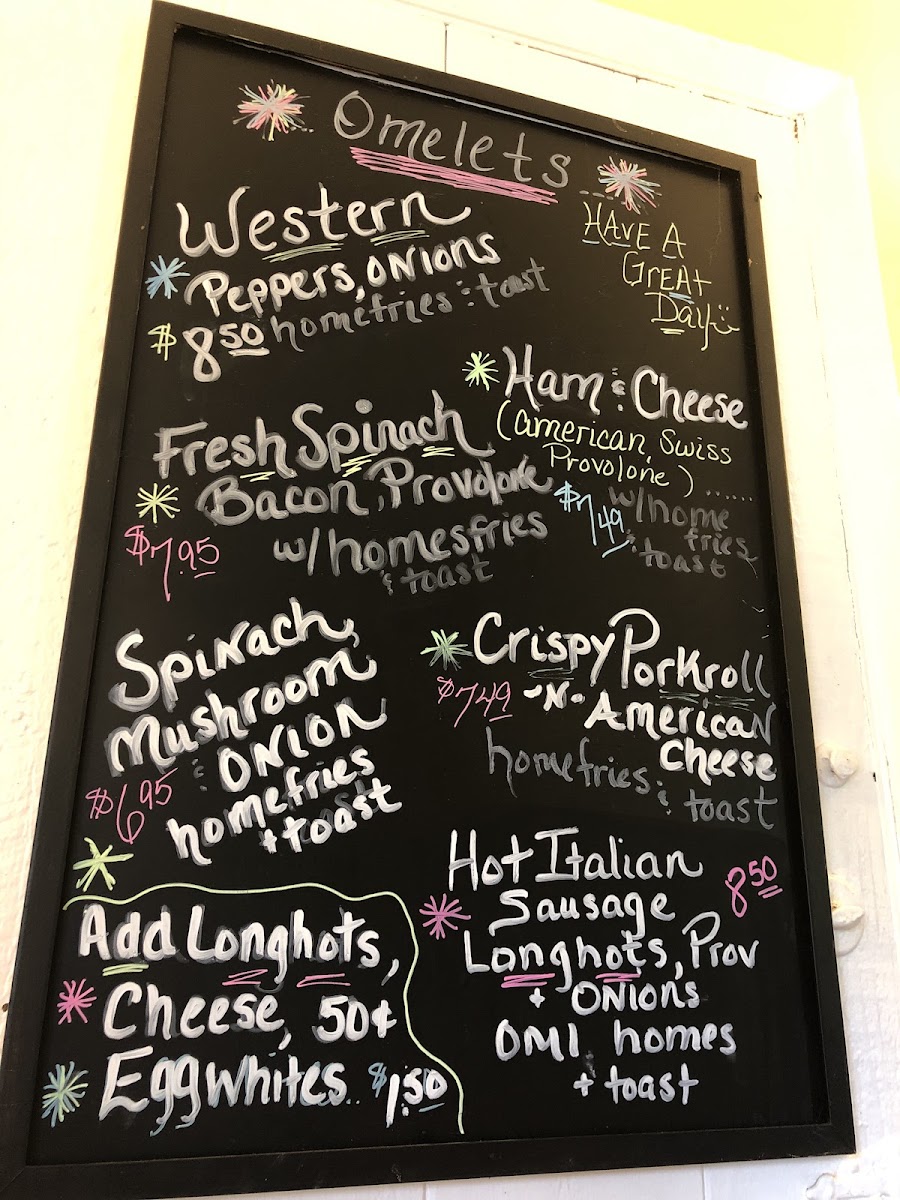 Omelets
Western
Peppers, Onions
$8.50 homefries & toast
Have A
Great
Day
Ham & Cheese
(american, Swiss
Provolone)......
$7.49 w/home
fries
& toast
Fresh Spinach
Bacon, Provolone
$7.95 w/homesfries
& toast
Spinach,
Mushroom
& Onion
$6.95 homefries
+ toast
Crispy Porkroll
$7.49 -N- American
Cheese
homefries & toast
Hot Italian
8.50
Sausage
Longhots, Prov
+ Onions
OMI homes
+ toast
Add Longhots,
Cheese, 50¢
Eggwhites.. $1.50